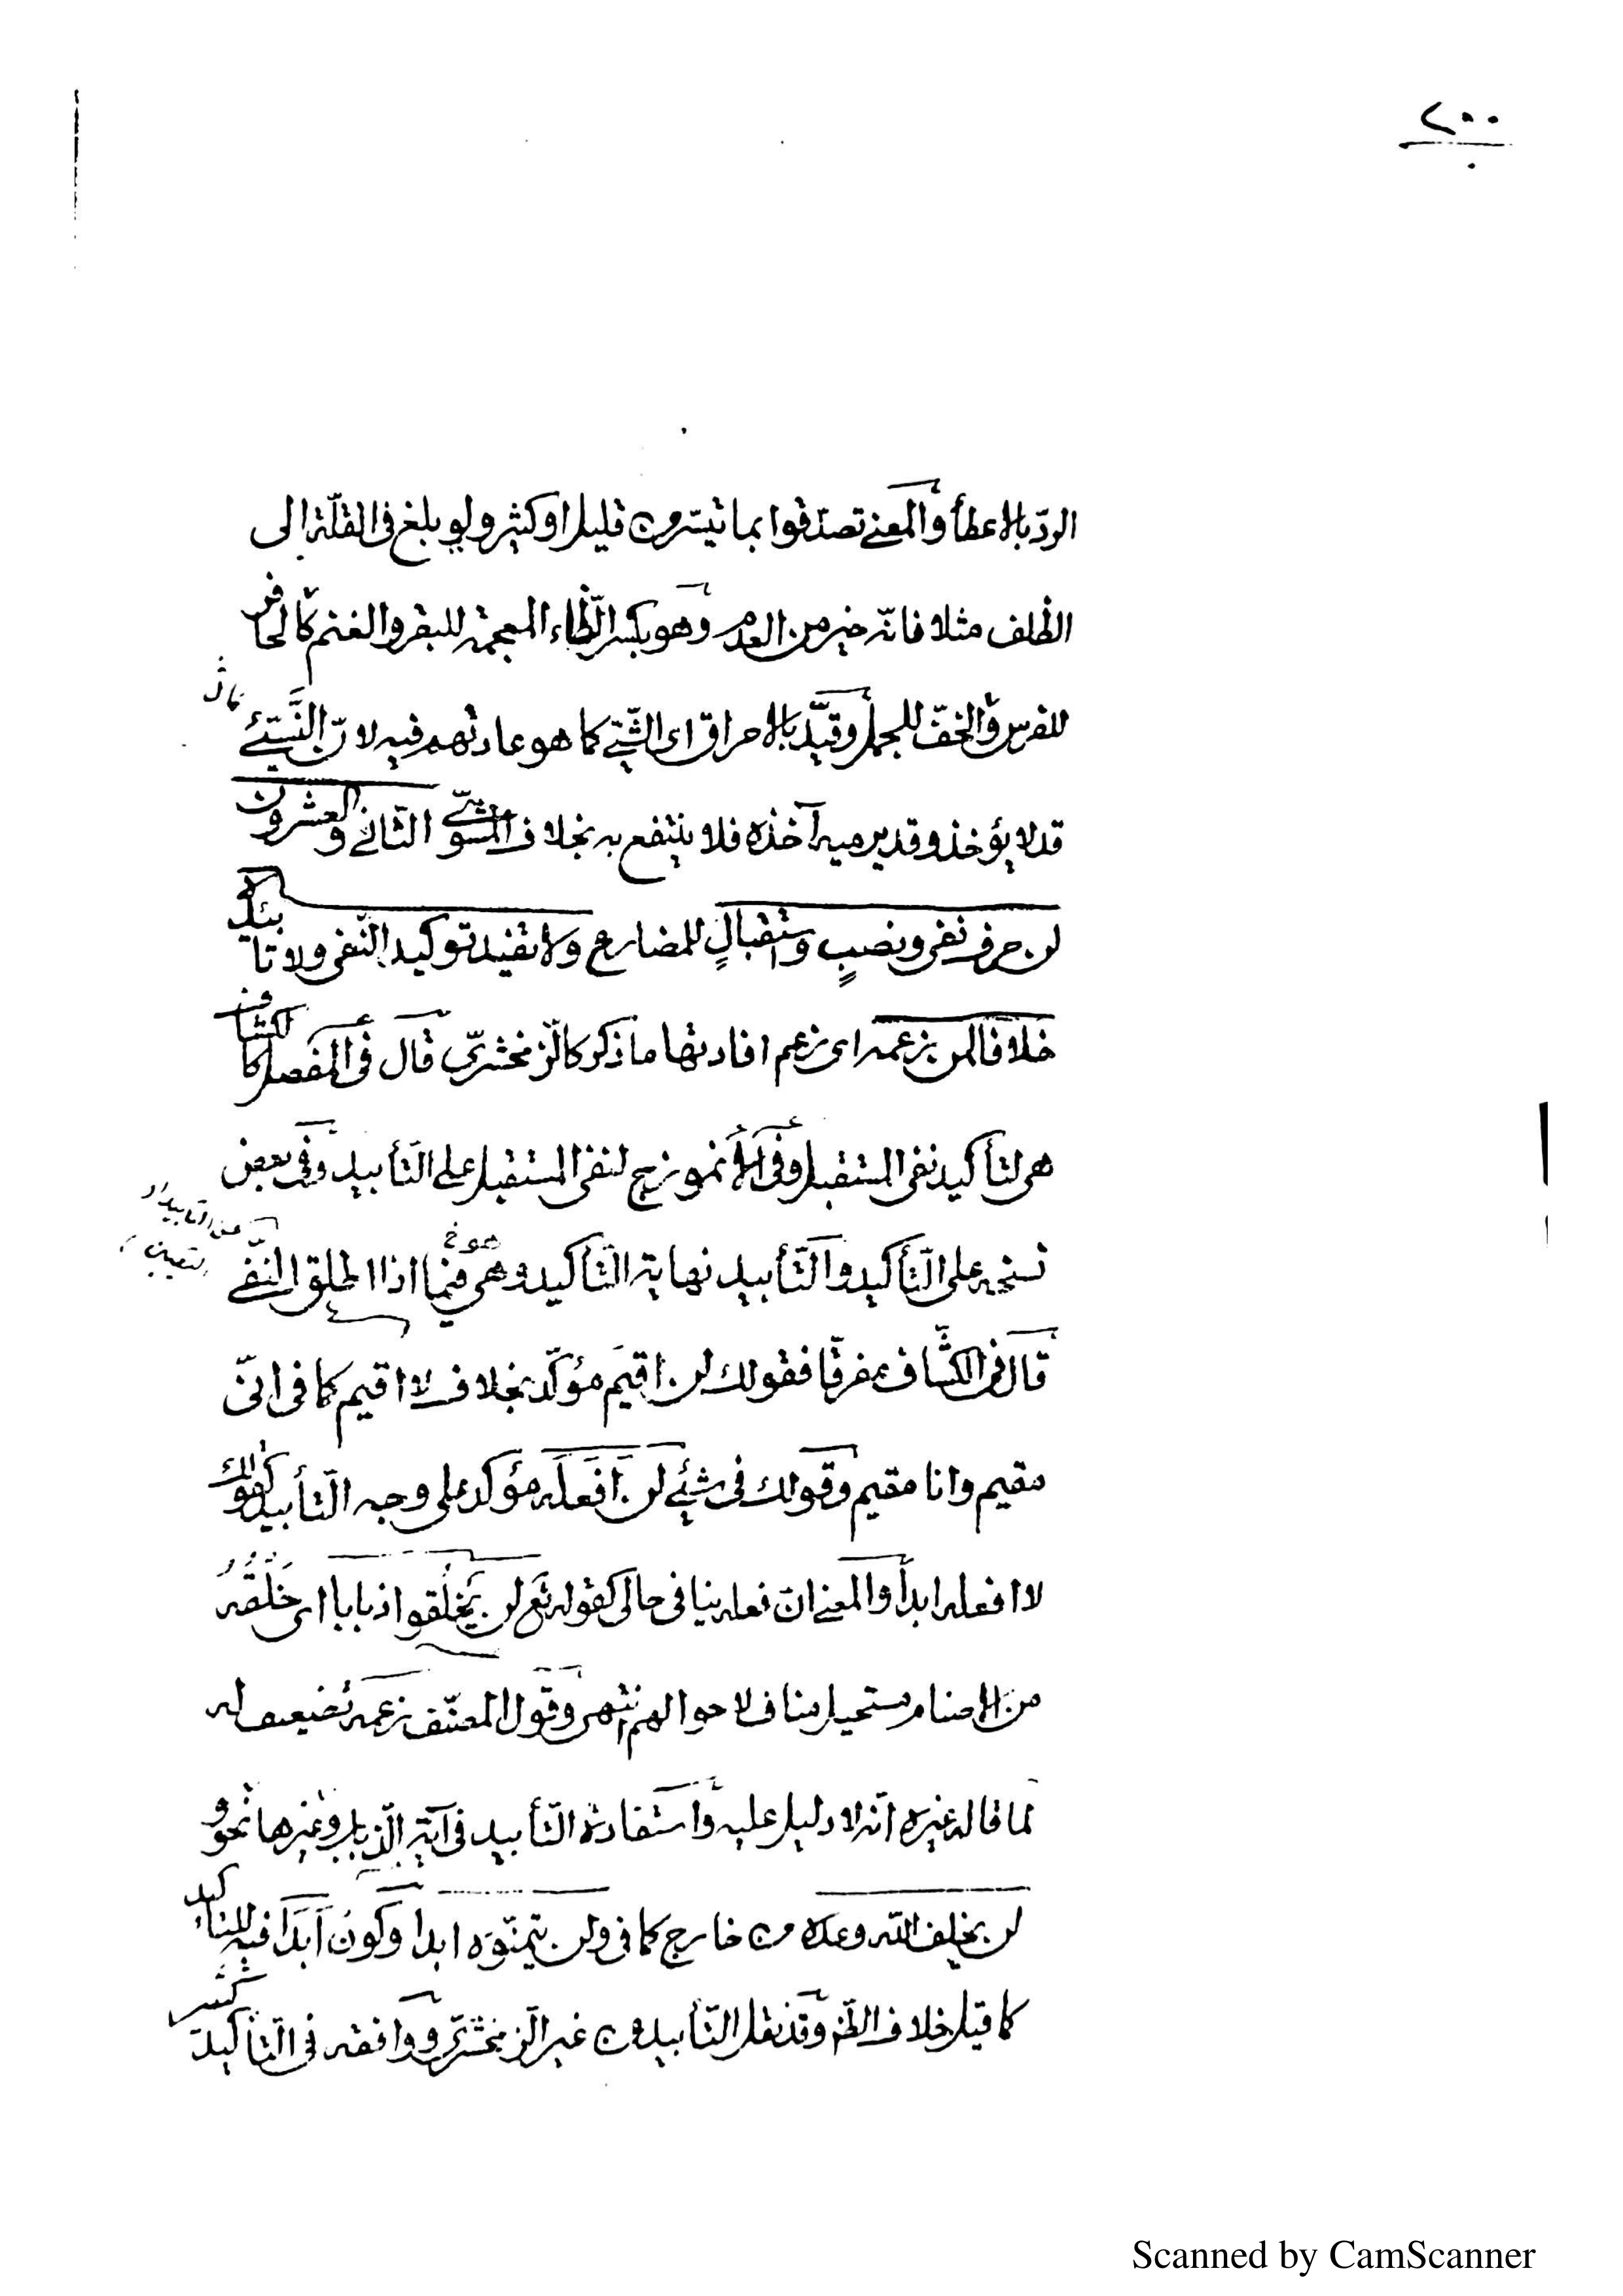 ٢٠٠
الردّ بالاعطأ والمعنى تصدّقوا بما تيسّر من قليل او كثير ولو بلغ فى القلّة الى
الظلف مثلا فانّه خير من العدم وهو بكسر الظّاء المعجمة للبقر والغنم كالحافر
للفرس والخفّ للجمل وقيّد بالاحراق اى الشّيّ كما هو عادتهم فيه لانّ النّيّئ
قد لا يؤخذ وقد يرميه آخذه فلا ينتفع به بخلاف المشويّ الثّانى والعشرون
لن حرف نفى ونصبٍ واستقبالٍ للمضارع ولا تفيد توكيد النّفى ولا تأبيده
خلافا لمن زعمه اى زعم افادتها ما ذكر كالزّمخشريّ قال فى المفصل كالكشّاف
هى لتأكيد نفى المستقبل وفى الأنموزج لنفى المستقبل على التّأبيد وفى بعض
نسخه على التّأكيد والتّأبيد نهاية التّأكيد وهى فيما اذا اطلق النّفى
هو خ
قال فى الكشّاف مفرقا فقولك لن اقيمَ مؤكّد بخلاف لا اقيم كما فى انّى
مقيم وانا مقيم وقولك فى شئ لن افعلَه مؤكد على وجه التّأبيد كقولك
لا افعله ابدا والمعنى ان فعله ينافى حالى كقوله تع لن يخلقوا ذبابا اى خَلْقُه
من الاصنام مستحيل مناف لاحوالهم انتهى وقول المصنّف زعمه تضعيف له
لما قاله غيره انّه لا دليل عليه واستفادة التّأبيد فى آية الذّباب وغيرها نحو و
لن يخلف اللّه وعده من خارج كما فى ولن يتمنّوه ابدا وكون ابدا فيه للتاكيد
كما قيل خلاف الظّ وقد نقل التّأبيد من غير الزّمخشريّ ووافقه فى التّأكيد كثير
Scanned by CamScanner